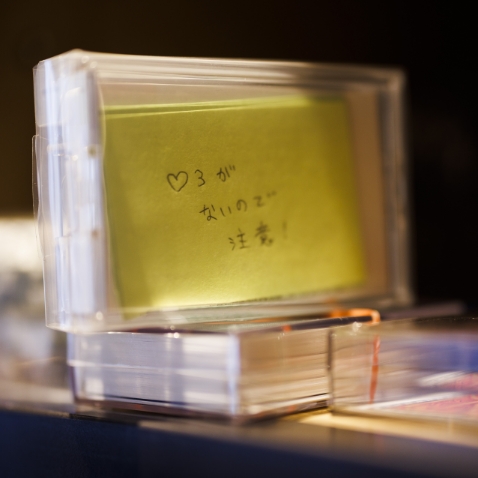 ♡3が
ないので
注意!